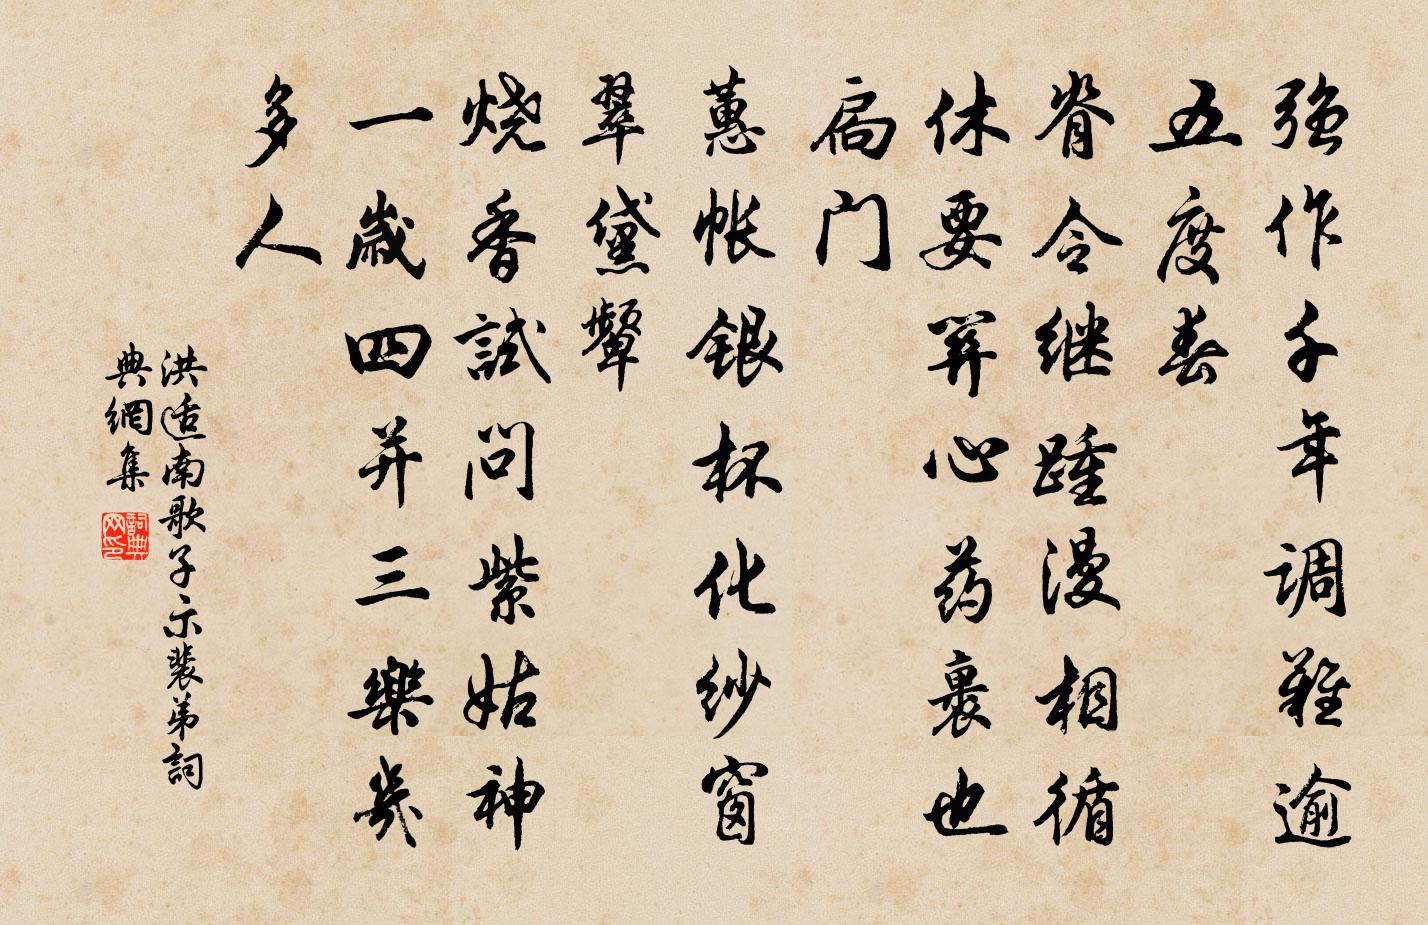 强作千年调难逾
五度春
脊令继踵漫相循
休要笄心药裹也
扃门
蕙帐银杯化纱窗
翠黛颦
烧香试问紫姑神
一岁四并三乐几
多人
洪适南歌子示裴弟詞
典網集
詞典网印